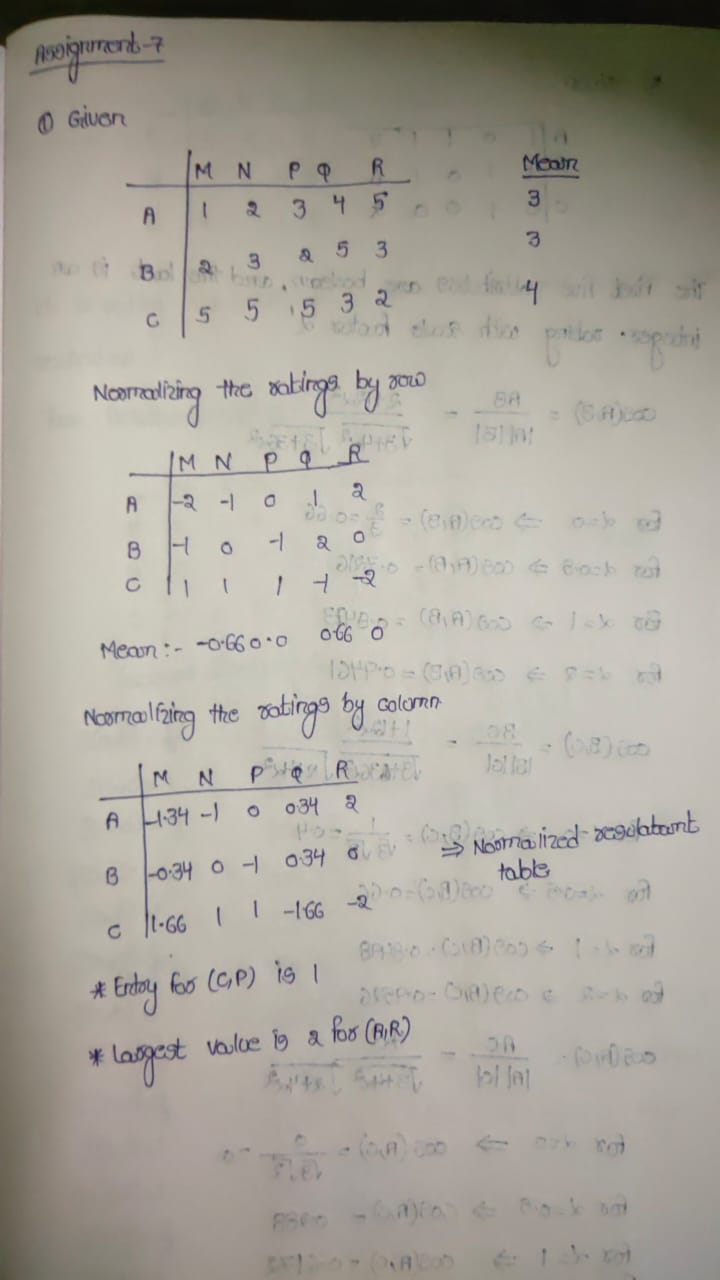 Assignment-7
① Given
M N P Q R Mean
A 1 2 3 4 5 3
B 2 3 2 5 3 3
C 5 5 5 3 2 4
Normalizing the ratings by row
M N P Q R
A -2 -1 0 1 2
B -1 0 -1 2 0
C 1 1 1 -1 -2
Mean :- -0.66 0 0 0.66 0
Normalizing the ratings by column
M N P Q R
A -1.34 -1 0 0.34 2
B -0.34 0 -1 0.34 0 ⇒ Normalized
C 1.66 1 1 -1.66 -2 table
* Entry for (C,P) is 1
* Largest value is 2 for (A,R)